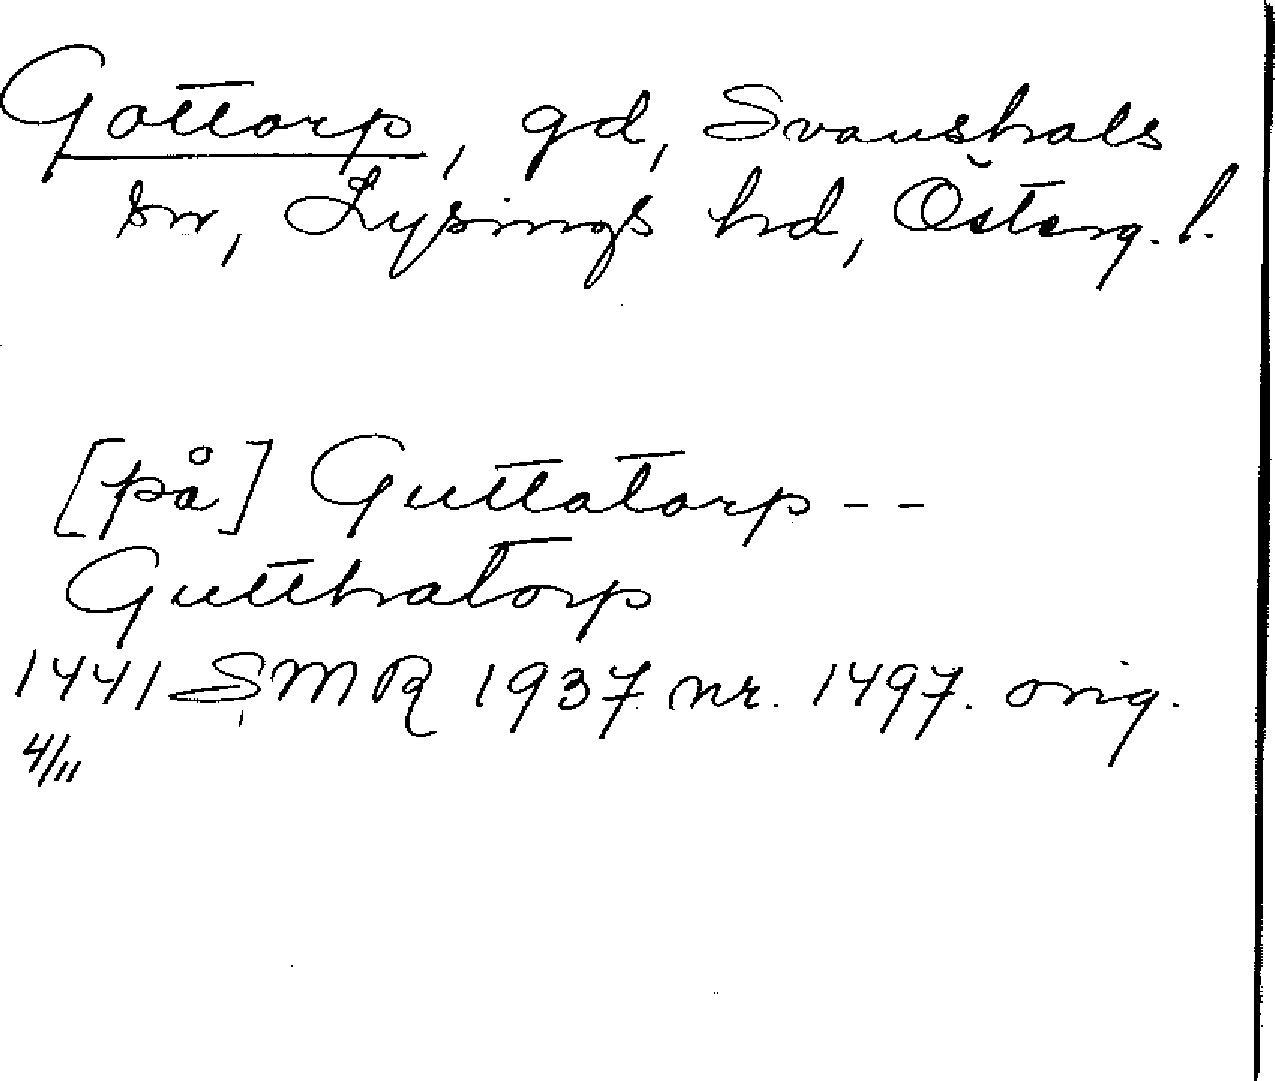 Gottorp, gd, Svanshals
sn, Lysings hd, Österg. l.
[på] Guttatorp - -
Gutthatorp
1441 SMR 1937 nr. 1497. orig.
4/11